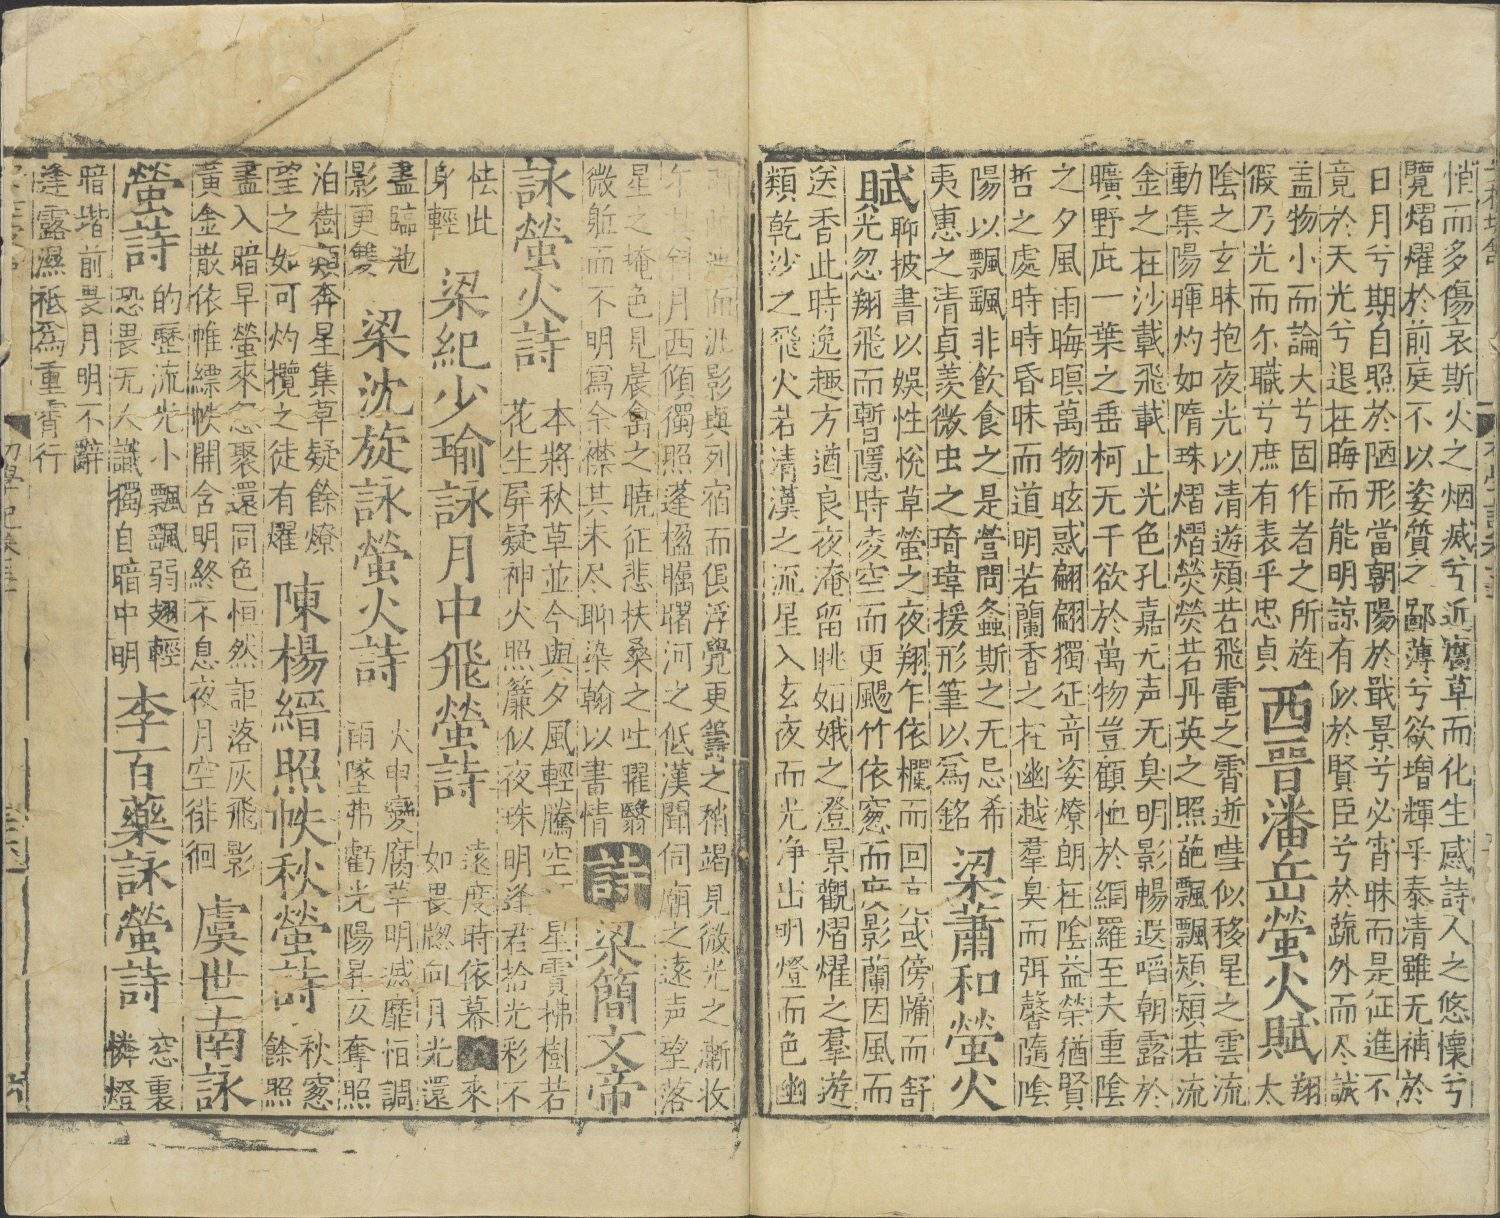 悄而多傷哀斯火之烟滅兮近腐草而化生感詩人之悠懷兮
覽熠燿於前庭不以姿質之鄙薄兮欲增輝乎泰清雖无補於
日月兮期自照於陋形當朝陽於戢景兮必宵昧而是征進不
竟於天光兮退在晦而能明諒有似於賢臣兮於疏外而尽誠
盖物小而論大兮固作者之所旌
假乃光而尔職兮庶有表乎忠貞
西晉潘岳螢火賦
翔
太
陰之玄昧抱夜光以清遊熲若飛電之霄逝嘒似移星之雲流
動集陽暉灼如隋珠熠熠熒熒若丹英之照葩飄飄熲熲若流
金之在沙載飛載止光色孔嘉无声无臭明影暢遐㗖朝露於
曠野庇一葉之垂柯无千欲於萬物豈顧恤於網羅至夫重陰
之夕風雨晦暝萬物眩惑翩翩獨征奇姿燎朗在陰益榮猶賢
哲之處時時昏昧而道明若蘭香之在幽越羣臭而弭馨隨陰
陽以飄颻非飲食之是營問螽斯之无忌希
夷惠之清貞羡微虫之琦瑋援形筆以為銘
梁蕭和螢火
賦
聊披書以娛性悅草螢之夜翔乍依欄而回 或傍牖而舒
光忽翔飛而暫隱時凌空而更颺竹依窓而度影蘭因風而
送香此時逸趣方遒良夜淹留眺如娥之澄景觀熠燿之羣遊
類乾沙之飛火若清漢之流星入玄夜而光净出明燈而色幽
而泚影與列宿而俱浮覺更籌之稍竭見微光之漸收
月西傾獨照蓬楹矚曙河之低漢聞伺廟之遠声望落
星之掩色見晨禽之曉征悲扶桑之吐曜翳
微躯而不明寫余襟其未尽聊染翰以書情
詩
梁簡文帝
詠螢火詩
本將秋草並今與夕風輕騰空 星霣拂樹若
花生屏疑神火照簾似夜珠明逢君拾光彩不
怯此
身輕
梁紀少瑜詠月中飛螢詩
遠度時依幕 來
如畏窓向月光還
盡臨池
影更雙
梁沈旋詠螢火詩
火中變腐草明滅靡恒調
雨墜弗虧光陽昇反奪照
泊樹類奔星集草疑餘燎
望之如可灼攬之徒有耀
陳楊縉照帙秋螢詩
秋窓
餘照
盡入暗早螢來怱聚還同色恒然詎落灰飛影
黃金散依帷縹帙開含明終不息夜月空徘徊
虞世南詠
螢詩
的歷流光小飄颻弱翅輕
恐畏无人識獨自暗中明
李百藥詠螢詩
窓裏
憐燈
暗堦前畏月明不辭
逢露濕祗為重宵行
初學記卷三十